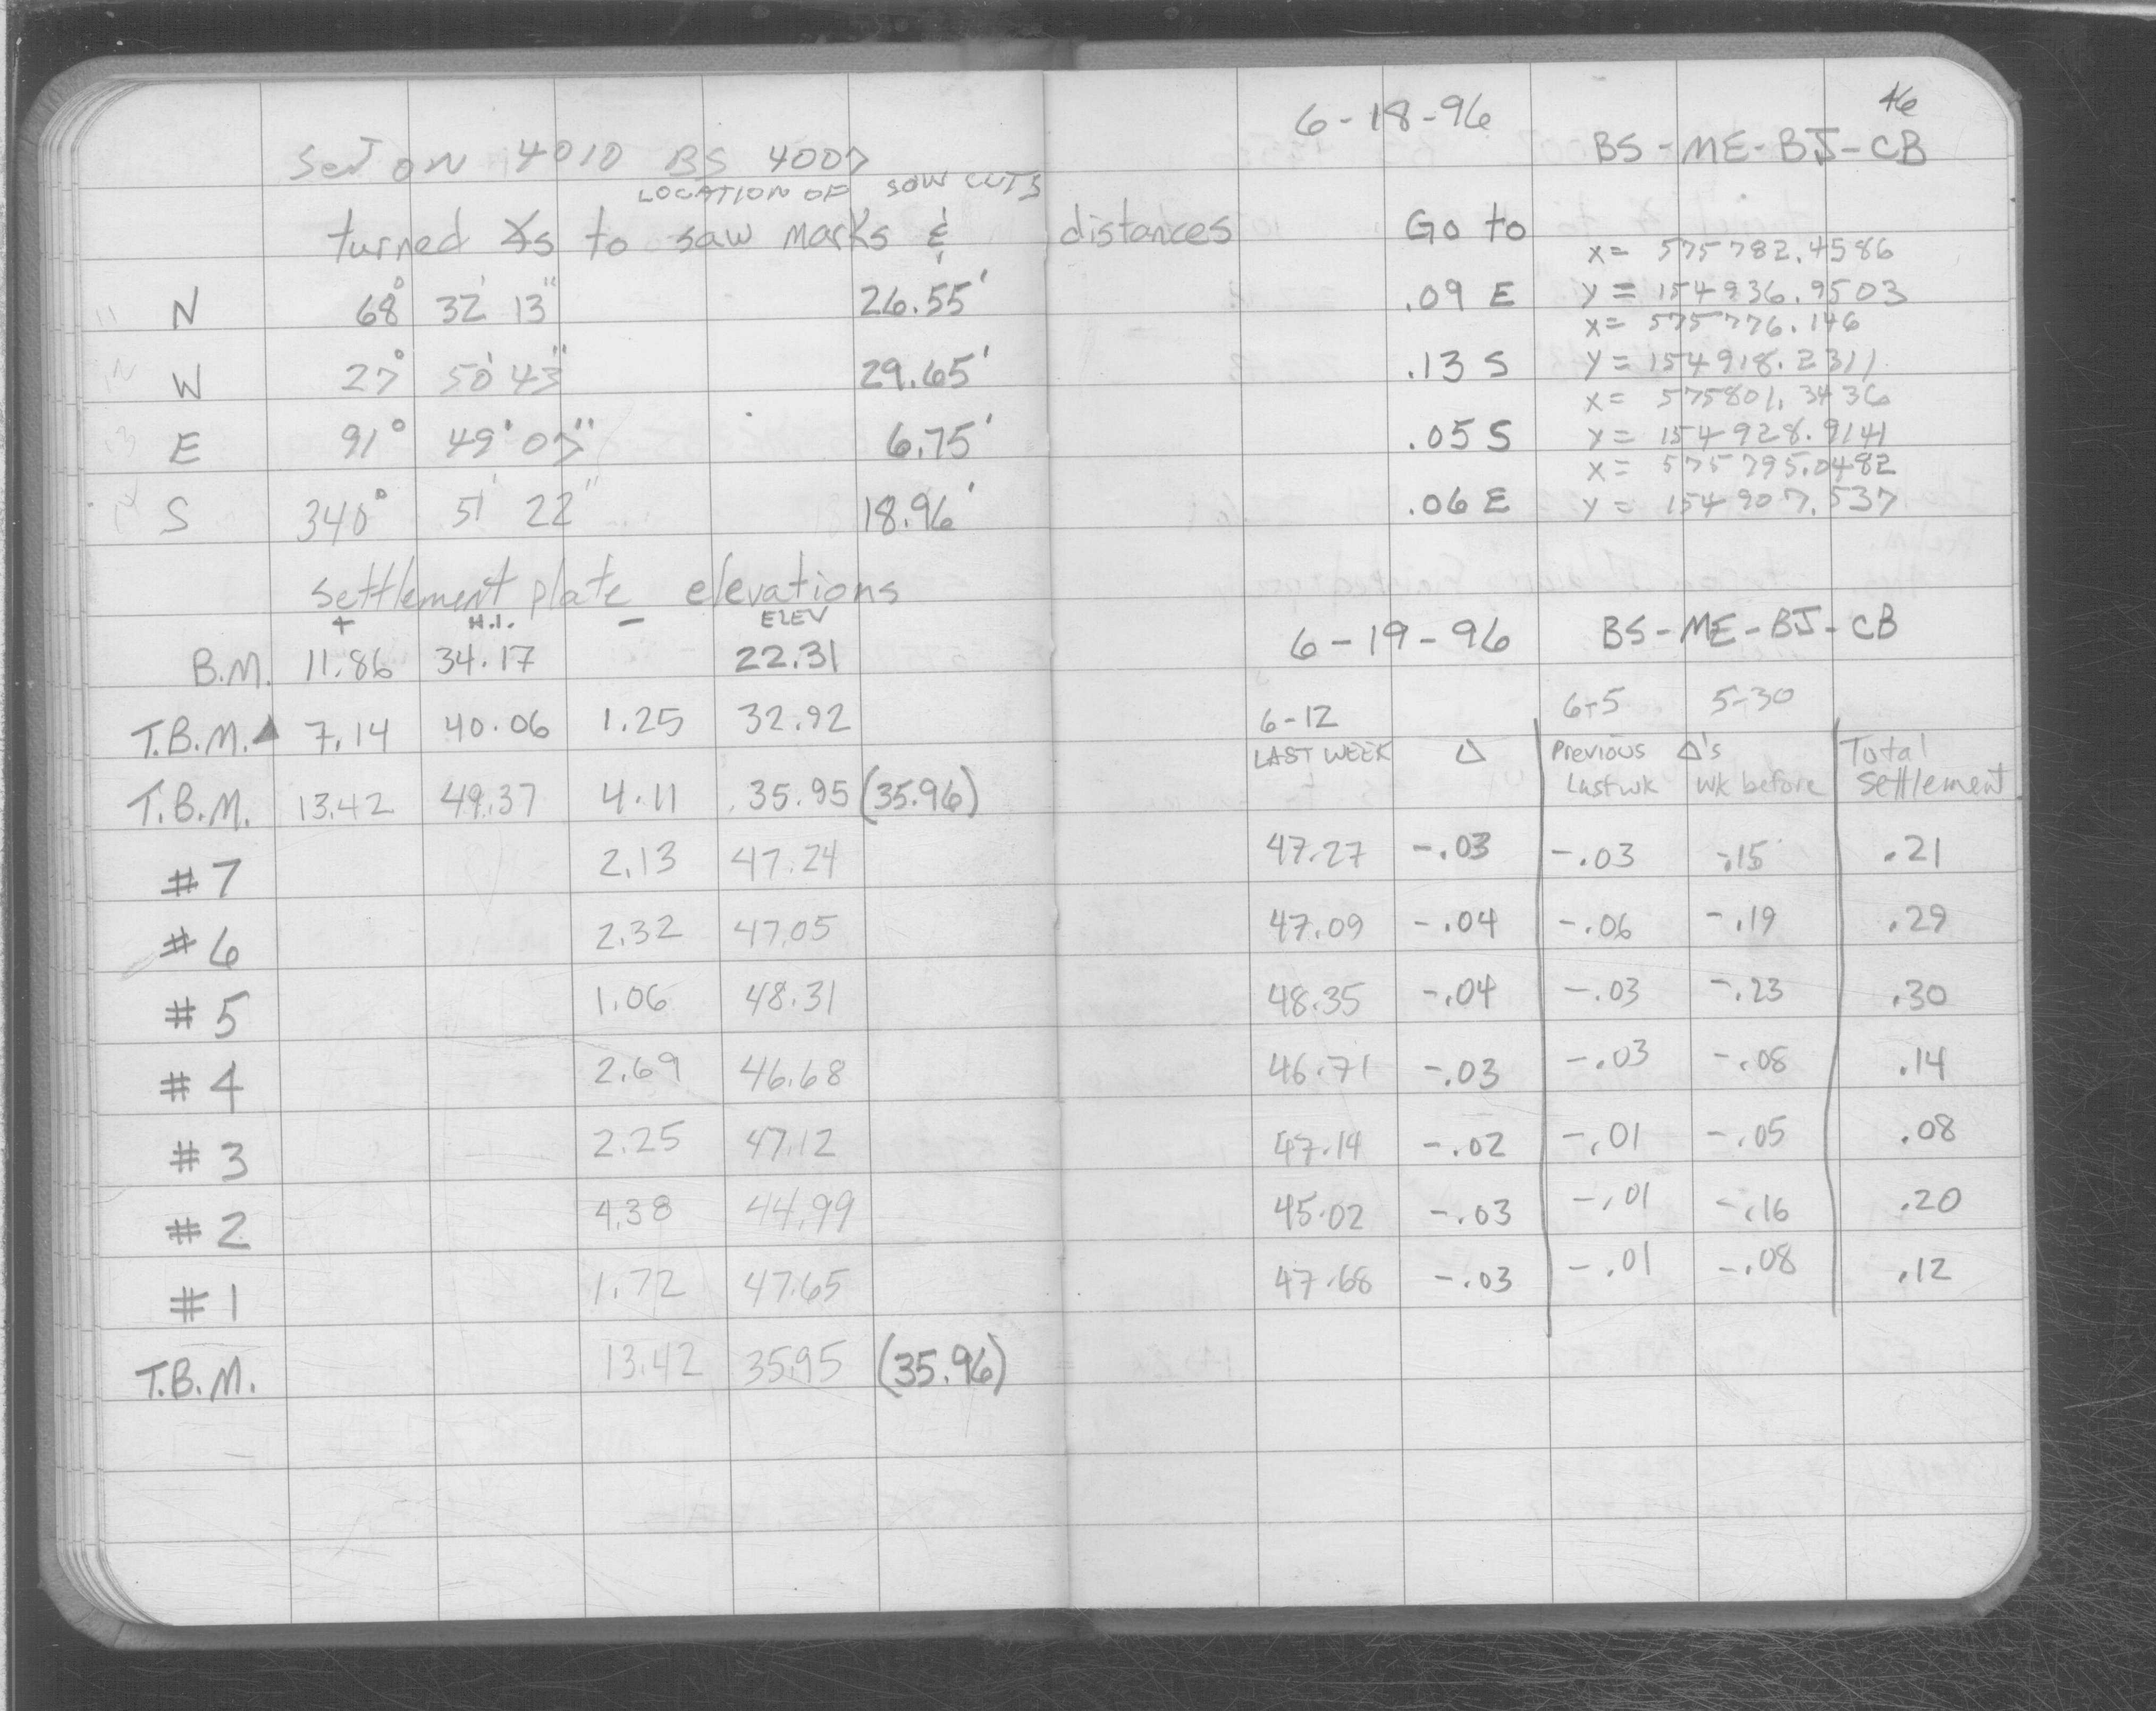 46
6-18-96 BS-ME-BJ-CB
Set on 4010 BS 4007
LOCATION OF SAW CUTS
turned ∡s to saw marks & distances Go to
x= 575782.4586
N 68° 32' 13" 26.55' .09 E y= 154936.9503
x= 575776.146
W 27° 50' 43" 29.65' .13 S y= 154918.2311
x= 575801.3436
E 91° 49' 07" 6.75' .05 S y= 154928.9141
x= 575795.0482
S 340° 51' 22" 18.96' .06 E y= 154907.537
settlement plate elevations
+ H.I. - ELEV
6-19-96 BS-ME-BJ-CB
B.M. 11.86 34.17 22.31
6-12 6-5 5-30
T.B.M. 7.14 40.06 1.25 32.92
LAST WEEK Δ Previous Δ's Total
Last wk wk before Settlement
T.B.M. 13.42 49.37 4.11 35.95 (35.96)
#7 2.13 47.24 47.27 -.03 -.03 -.15 .21
#6 2.32 47.05 47.09 -.04 -.06 -.19 .29
#5 1.06 48.31 48.35 -.04 -.03 -.23 .30
#4 2.69 46.68 46.71 -.03 -.03 -.08 .14
#3 2.25 47.12 47.14 -.02 -.01 -.05 .08
#2 4.38 44.99 45.02 -.03 -.01 -.16 .20
#1 1.72 47.65 47.68 -.03 -.01 -.08 .12
T.B.M. 13.42 35.95 (35.96)